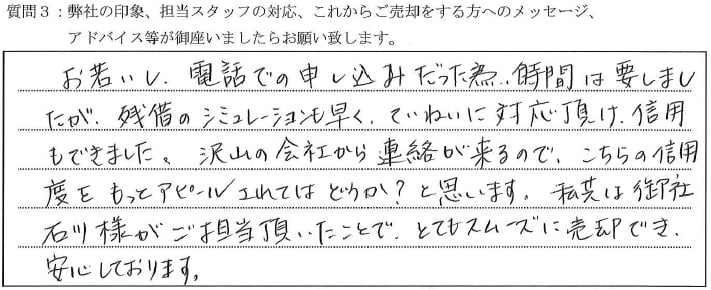 質問３：弊社の印象、担当スタッフの対応、これからご売却をする方へのメッセージ、
アドバイス等が御座いましたらお願い致します。
お若いし、電話での申し込みだった為、時間は要しまし
たが、残借のシミュレーションも早く、ていねいに対応頂け、信用
もできました。沢山の会社から連絡が来るので、こちらの信用
度をもっとアピールされてはどうか？と思います。私共は御社
石川様がご担当頂いたことで、とてもスムーズに売却でき、
安心しております。